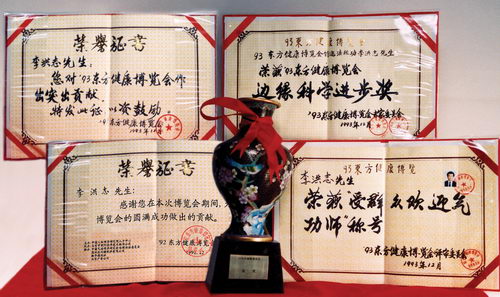 荣誉证书
李洪志先生:
您对'93东方健康博览会作
出突出贡献,
特发此证 以资鼓励。
'93东方健康博览会
1993年12月
93东方健康博览会
荣获'93东方健康博览会
边缘科学进步奖
'93东方健康博览会评审委员会
1993年12月
荣誉证书
李洪志先生:
感谢您在本次博览会期间,
博览会的圆满成功做出的贡献。
'92东方健康博览会
93东方健康博览
李洪志先生
荣获"受群众欢迎气
功师"称号
'93东方健康博览会评审委员会
1993年12月